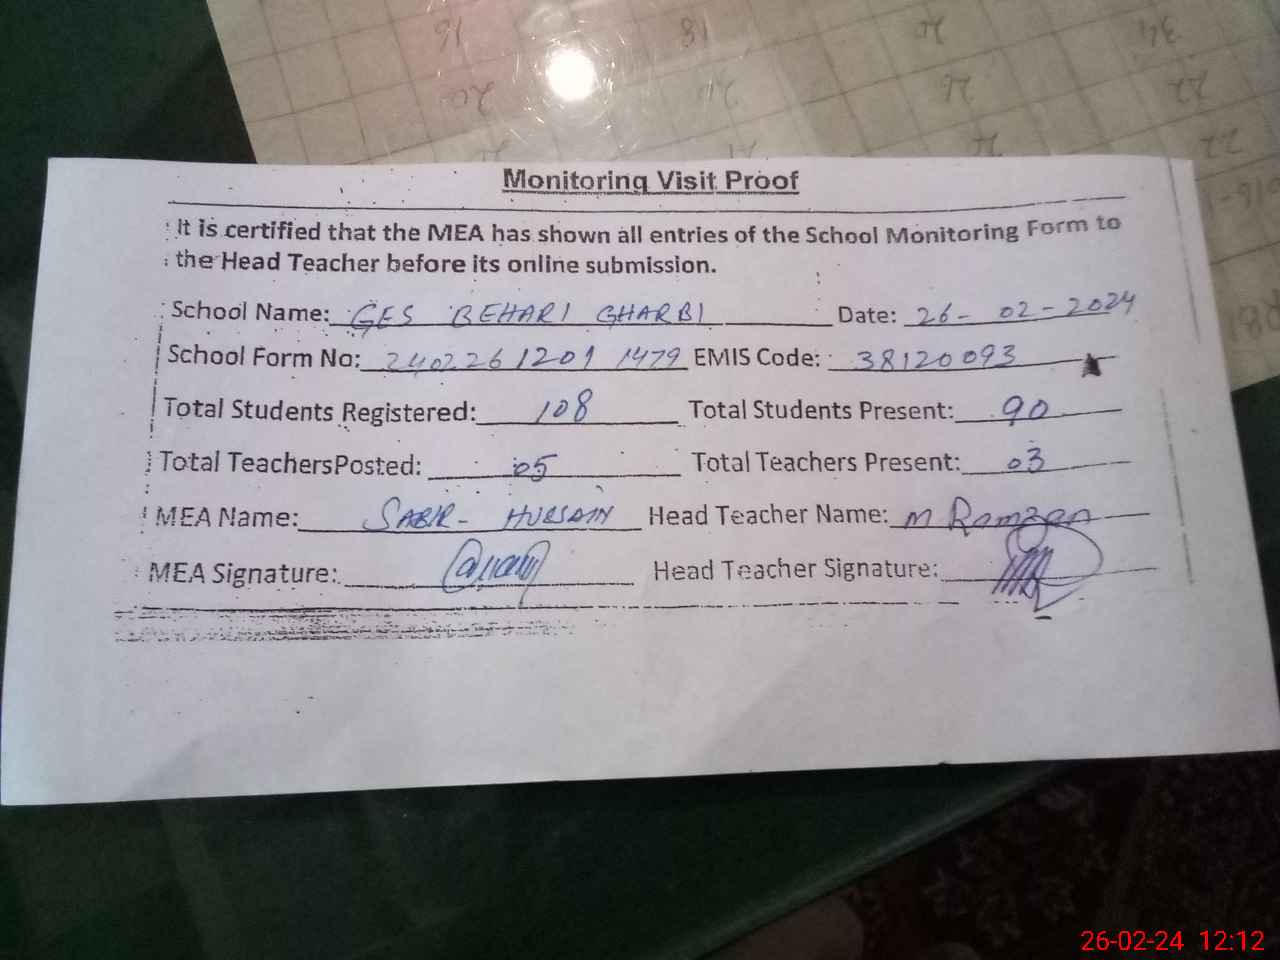 16 18
20
Monitoring Visit Proof
It is certified that the MEA has shown all entries of the School Monitoring Form to
the Head Teacher before its online submission.
School Name: GES BEHARI GHARBI Date: 26-02-2024
School Form No: 240226 1201 1479 EMIS Code: 38120093
Total Students Registered: 108 Total Students Present: 90
Total TeachersPosted: 05 Total Teachers Present: 03
MEA Name: SABIR- HUSSAIN Head Teacher Name: M Ramzan
MEA Signature: Head Teacher Signature:
26-02-24 12:12